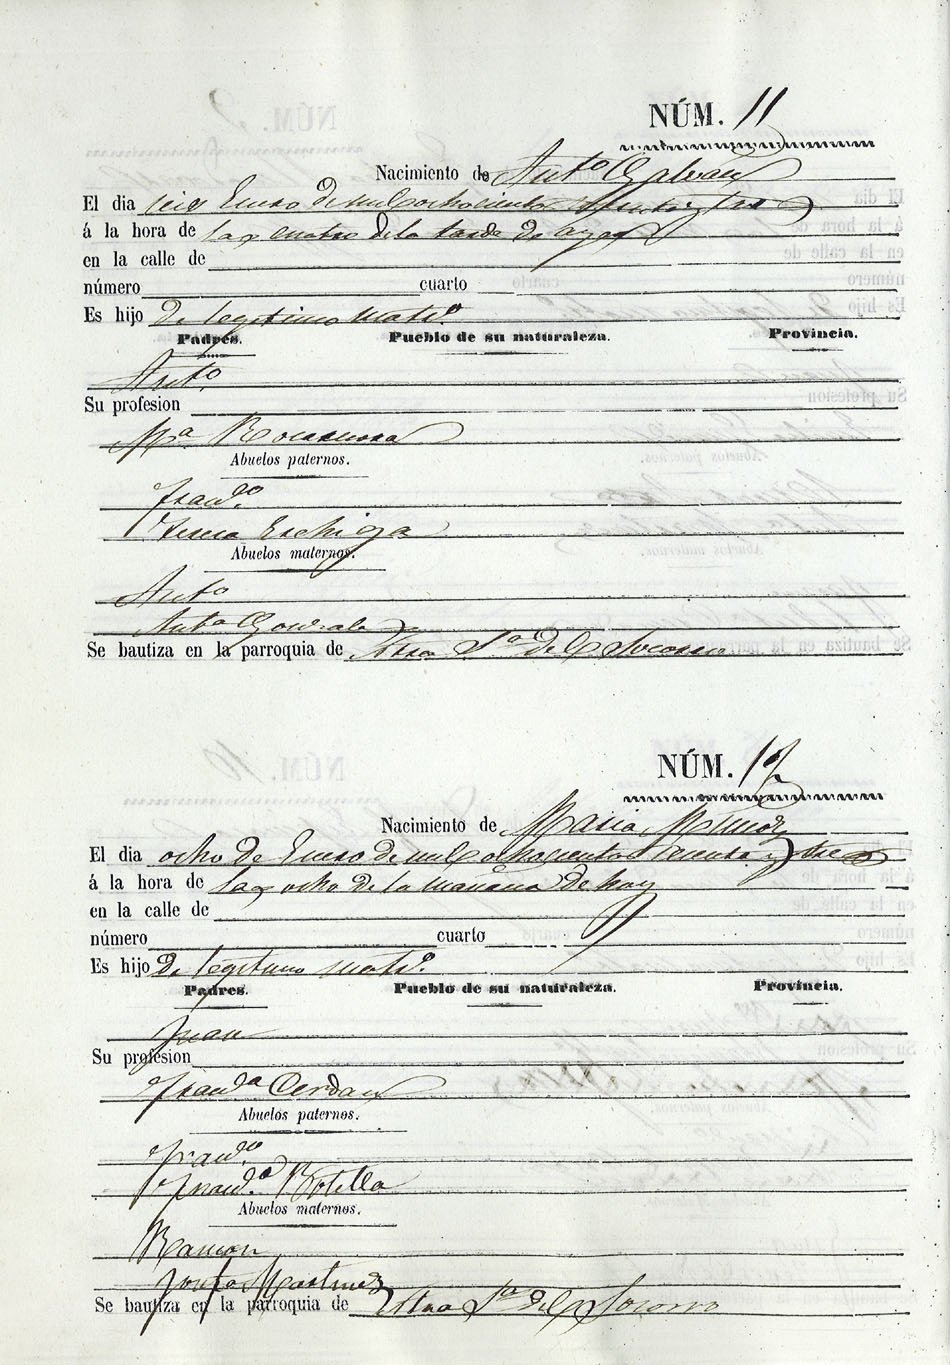 NÚM. 11
Nacimiento de Antº Galvañ
El dia seis Enero de mil ochocientos tres
á la hora de las cuatro de la tarde de ayer
en la calle de
número cuarto
Es hijo de legitimo Matrº
Padres. Pueblo de su naturaleza. Provincia.
Antº
Su profesion
Mª
Abuelos paternos.
Francº
Teresa
Abuelos maternos.
Antº
Antª Gonzalez
Se bautiza en la parroquia de Ntra Sª del Socorro
NÚM. 12
Nacimiento de Maria Muñoz
El dia ocho de Enero de mil ochocientos y tres
á la hora de las ocho de la mañana de hoy
en la calle de
número cuarto
Es hijo de legitimo matrº
Padres. Pueblo de su naturaleza. Provincia.
Juan
Su profesion
Francª Cerdan
Abuelos paternos.
Francº
Francª Botella
Abuelos maternos.
Ramon
Josefa Martinez
Se bautiza en la parroquia de Ntra Sª del Socorro